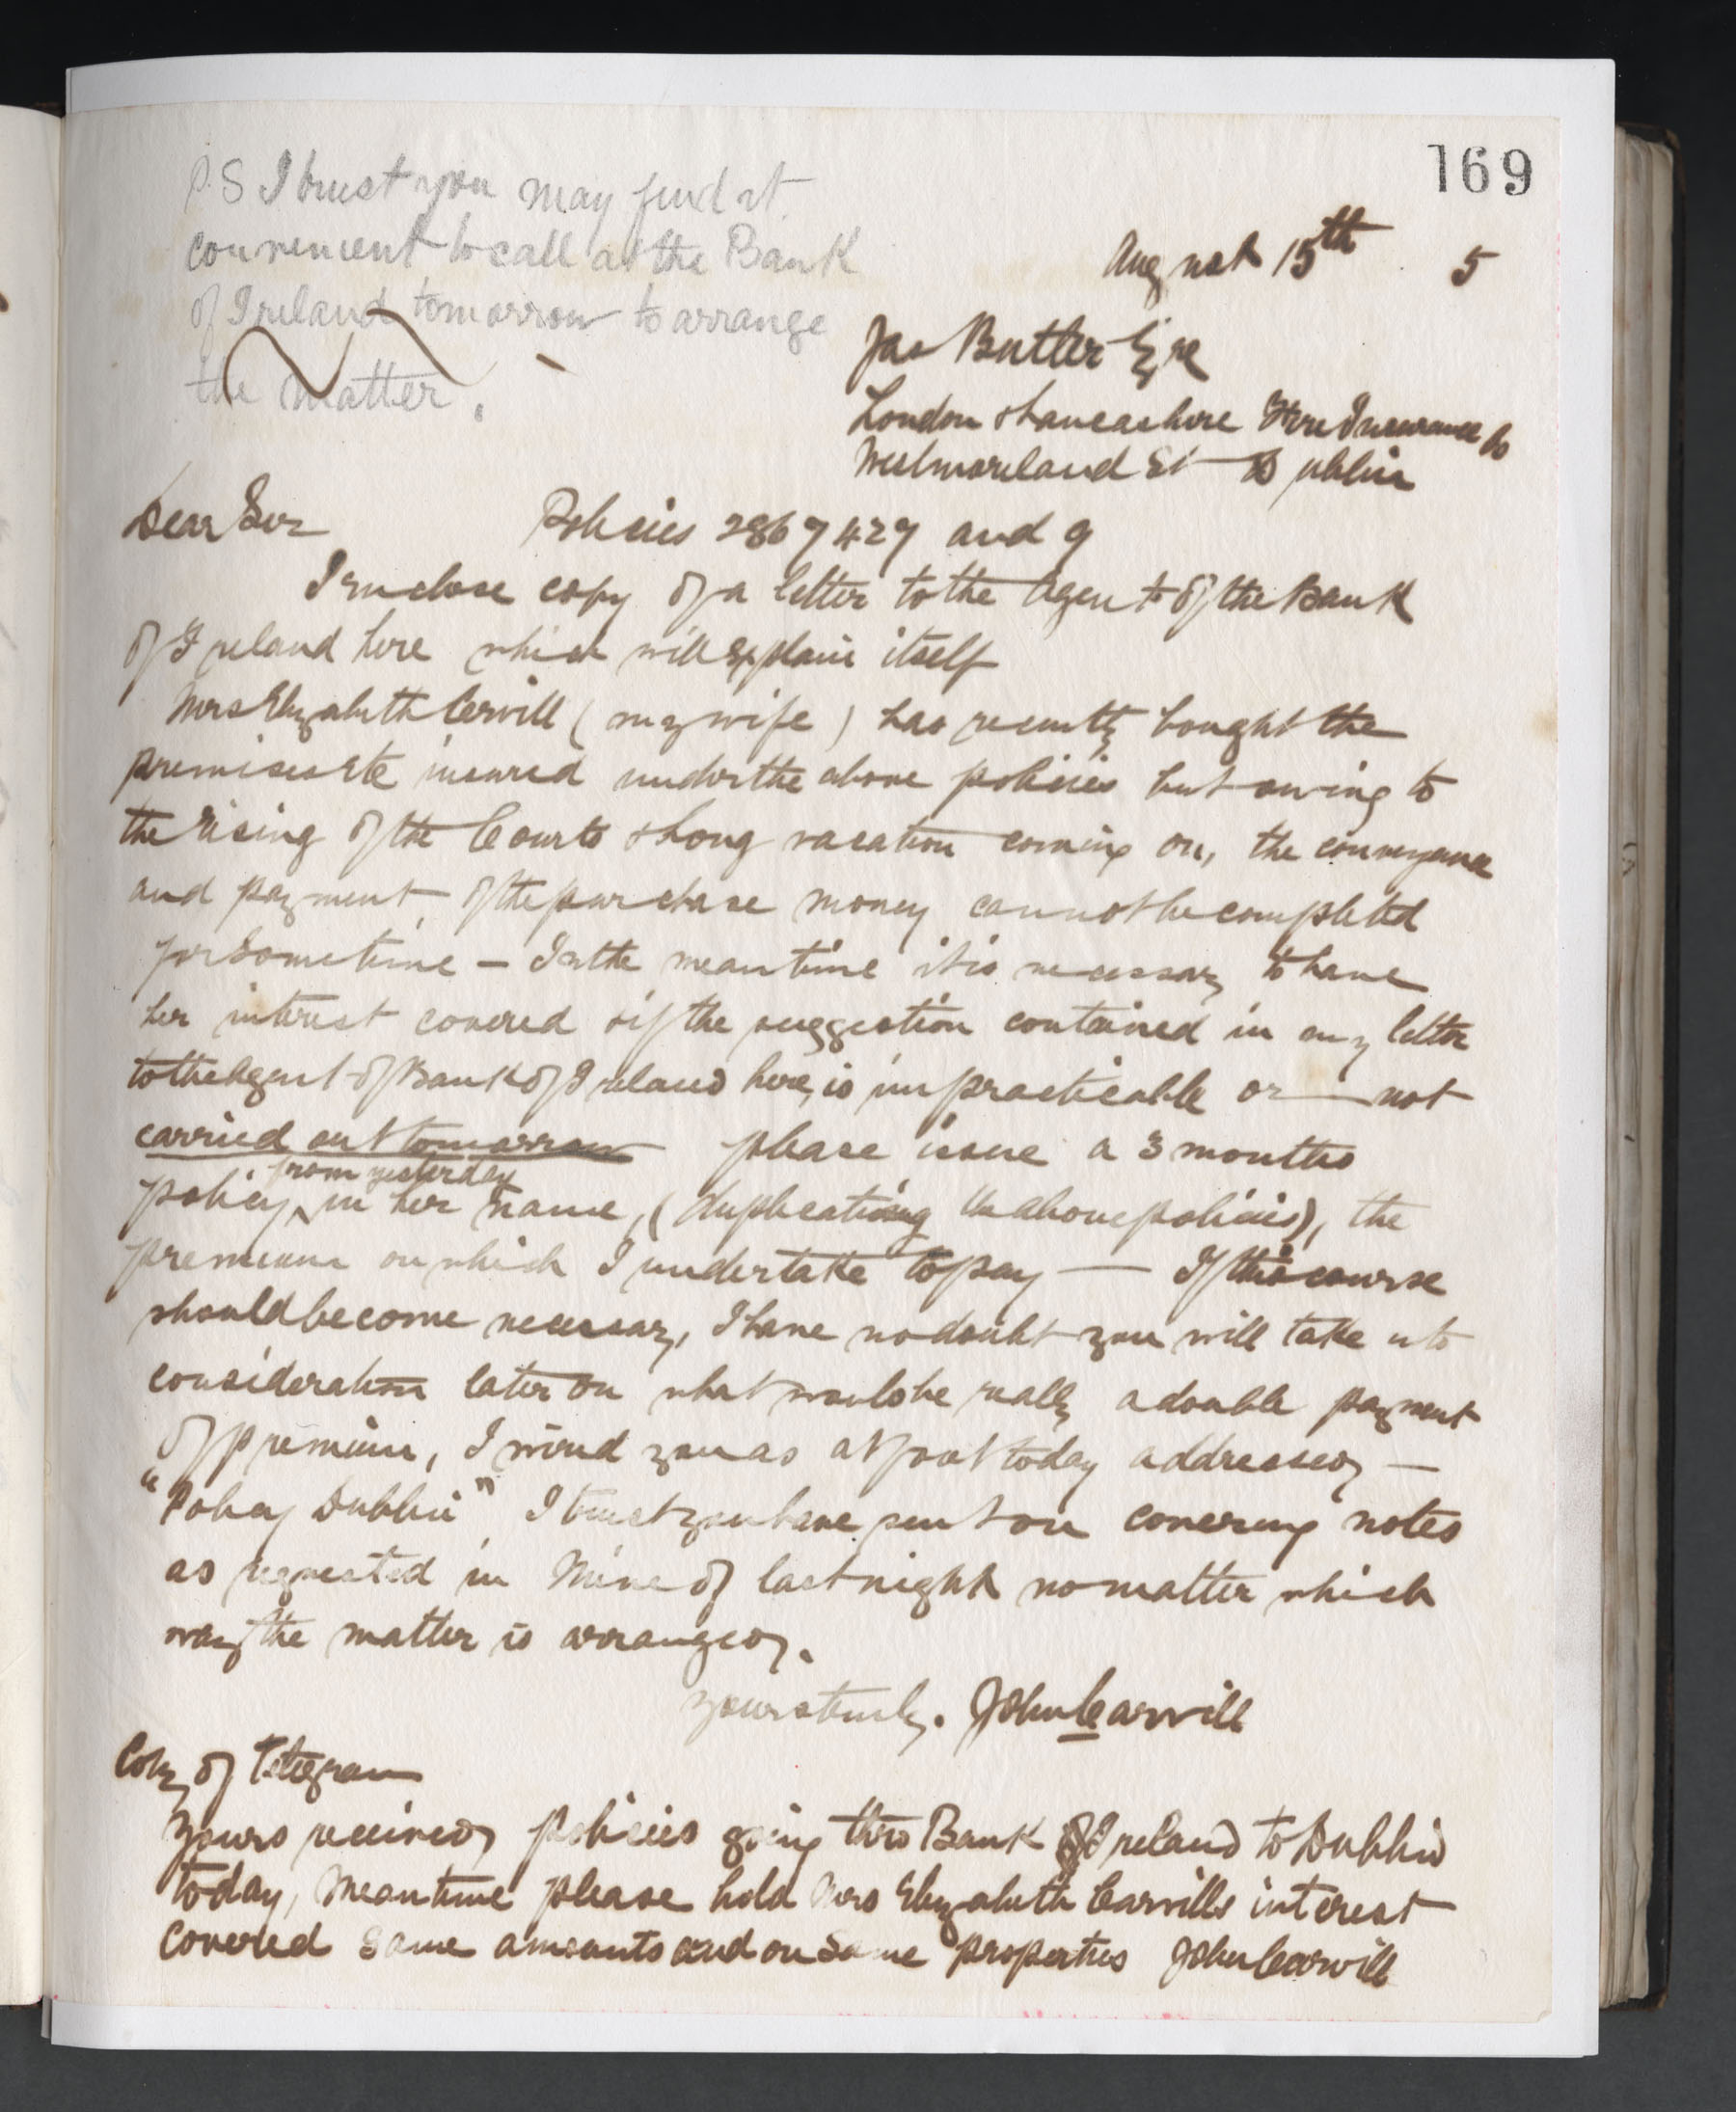 169
P.S I trust you may find it
convenient to call at the Bank
of Ireland tomorrow to arrange
the matter.
August 15th 5
Jas Butler Esqre
London & Lancashire Fire Insurance Co
Westmoreland St Dublin
Dear Sir Policies 2867427 and 9
I enclose copy of a letter to the Agent of the Bank
of Ireland here which will explain itself
Mrs Elizabeth Carvill (my wife) has recently bought the
premises etc insured under the above policies but owing to
the rising of the Courts & Long vacation coming on, the conveyance
and payment of the purchase money cannot be completed
for some time - In the meantime it is necessary to have
her interest covered & if the suggestion contained in my letter
to the Agent of Bank of Ireland here, is impracticable or not
carried out tomorrow please issue a 3 months
from yesterday
policy in her name, (duplicating the above policies), the
premium on which I undertake to pay — If this course
should become necessary, I have no doubt you will take into
consideration later on what would be really a double payment
of premium, I wired you as at foot today addressed —
"Policy Dublin" I trust you have sent on covering notes
as requested in mine of last night no matter which
way the matter is arranged.
Yours truly. John Carvill
Copy of Telegram
Yours received policies going thro Bank of Ireland to Dublin
today, meantime please hold Mrs Elizabeth Carvills interest
covered same amounts and on same properties John Carvill